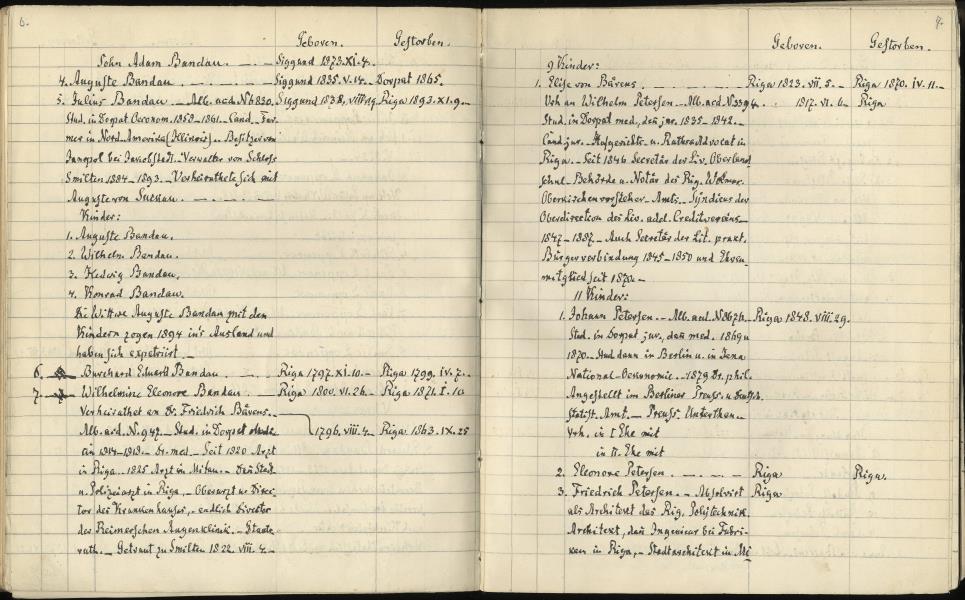 6.
Geboren. Gestorben.
Sohn Adam Bandau. Siggund 1873. XI. 4.
4. Auguste Bandau Siggund 1835. V. 14. Dorpat 1865.
5. Julius Bandau Alb. acd. N. 6830. Siggund 1838, VIII. 19. Riga 1893. XI. 9.
Stud. in Dorpat Oeconom. 1859–1861. Cand. Far-
mer in Nord-Amerika (Illinois). Besitzer von
bei Jacobstadt. Verwalter von Schloss
Smilten 1884–1893. Verheirathete sich mit
Auguste von
Kinder:
1. Auguste Bandau.
2. Wilhelm Bandau.
3. Hedwig Bandau.
4. Konrad Bandau.
Die Wittwe Auguste Bandau mit den
Kindern zogen 1894 in's Ausland und
haben sich expatriirt.
6. Burchard Eduard Bandau. Riga 1797. XI. 10. Riga 1799. IV. 7.
7. Wilhelmine Eleonore Bandau. Riga 1800. VI. 26. Riga 1871. I. 10
Verheirathet an Dr. Friedrich Bärens.
Alb. acd. N. 947. Stud. in Dorpat 1796. VIII. 4. Riga 1863. IX. 25
Dr. med. Seit 1820 Arzt
in Riga. 1825 Arzt in Mitau. Dan Stadt
u. Polizeiarzt in Riga, Oberarzt u. Direc-
tor des Krankenhauses, endlich Director
der Reimerschen Augenklinik. Staats-
rath. Getraut zu Smilten 1822. VIII. 4.
7.
Geboren. Gestorben.
9 Kinder:
1. Elise von Bärens Riga 1823. VII. 5. Riga 1870. IV. 11.
Vrh. an Wilhelm Petersen. Alb. acd. N. 3394. 1817. VI. 6. Riga
Stud. in Dorpat med., dan jur. 1835–1842.
Cand. jur. Hofgerichts- u. Rathsadvocat in
Riga. Seit 1846 Secretär der Liv. Oberland
schul-Behörde u. Notär des Rig. Wolmar.
Oberkirchenvorsteher Amts. Syndicus der
Oberdirection des Liv. adl. Creditvereins
1847–1887. Auch Secretär der Lit. prakt.
Bürgerverbindung 1845–1850 und Ehren-
mitglied seit 1870.
11 Kinder:
1. Johann Petersen. Alb. acd. N. Riga 1848. VIII. 29.
Stud. in Dorpat jur., dan med. 1869 u
1870. Stud dann in Berlin u. in Jena
National Oekonomie. 1879 Dr. phil.
Angestellt im Berliner Preuss. u deutsch.
Statist. Amt. Preuss. Unterthan.
Vrh. in I Ehe mit
in II. Ehe mit
2. Eleonore Petersen. Riga Riga.
3. Friedrich Petersen. Absolvirt Riga
als Architect das Rig. Polytechnik.
Architect, dan Ingenieur bei Fabri-
ken in Riga, Stadtarchitect in Mi